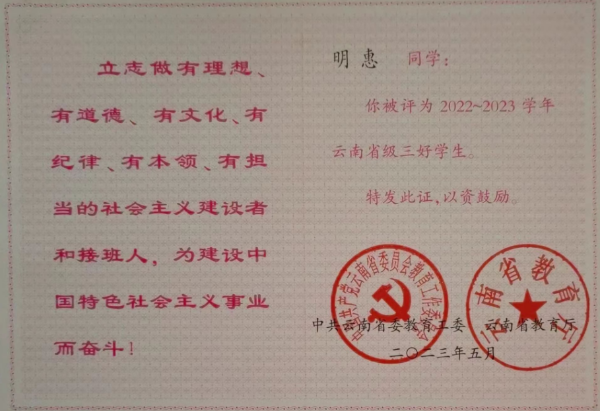 立志做有理想、
有道德、有文化、有
纪律、有本领、有担
当的社会主义建设者
和接班人，为建设中
国特色社会主义事业
而奋斗！
明惠 同学：
你被评为 2022~2023 学年
云南省级三好学生。
特发此证，以资鼓励。
中国共产党云南省委员会教育工作委员会
云南省教育厅
中共云南省委教育工委 云南省教育厅
二〇二三年五月